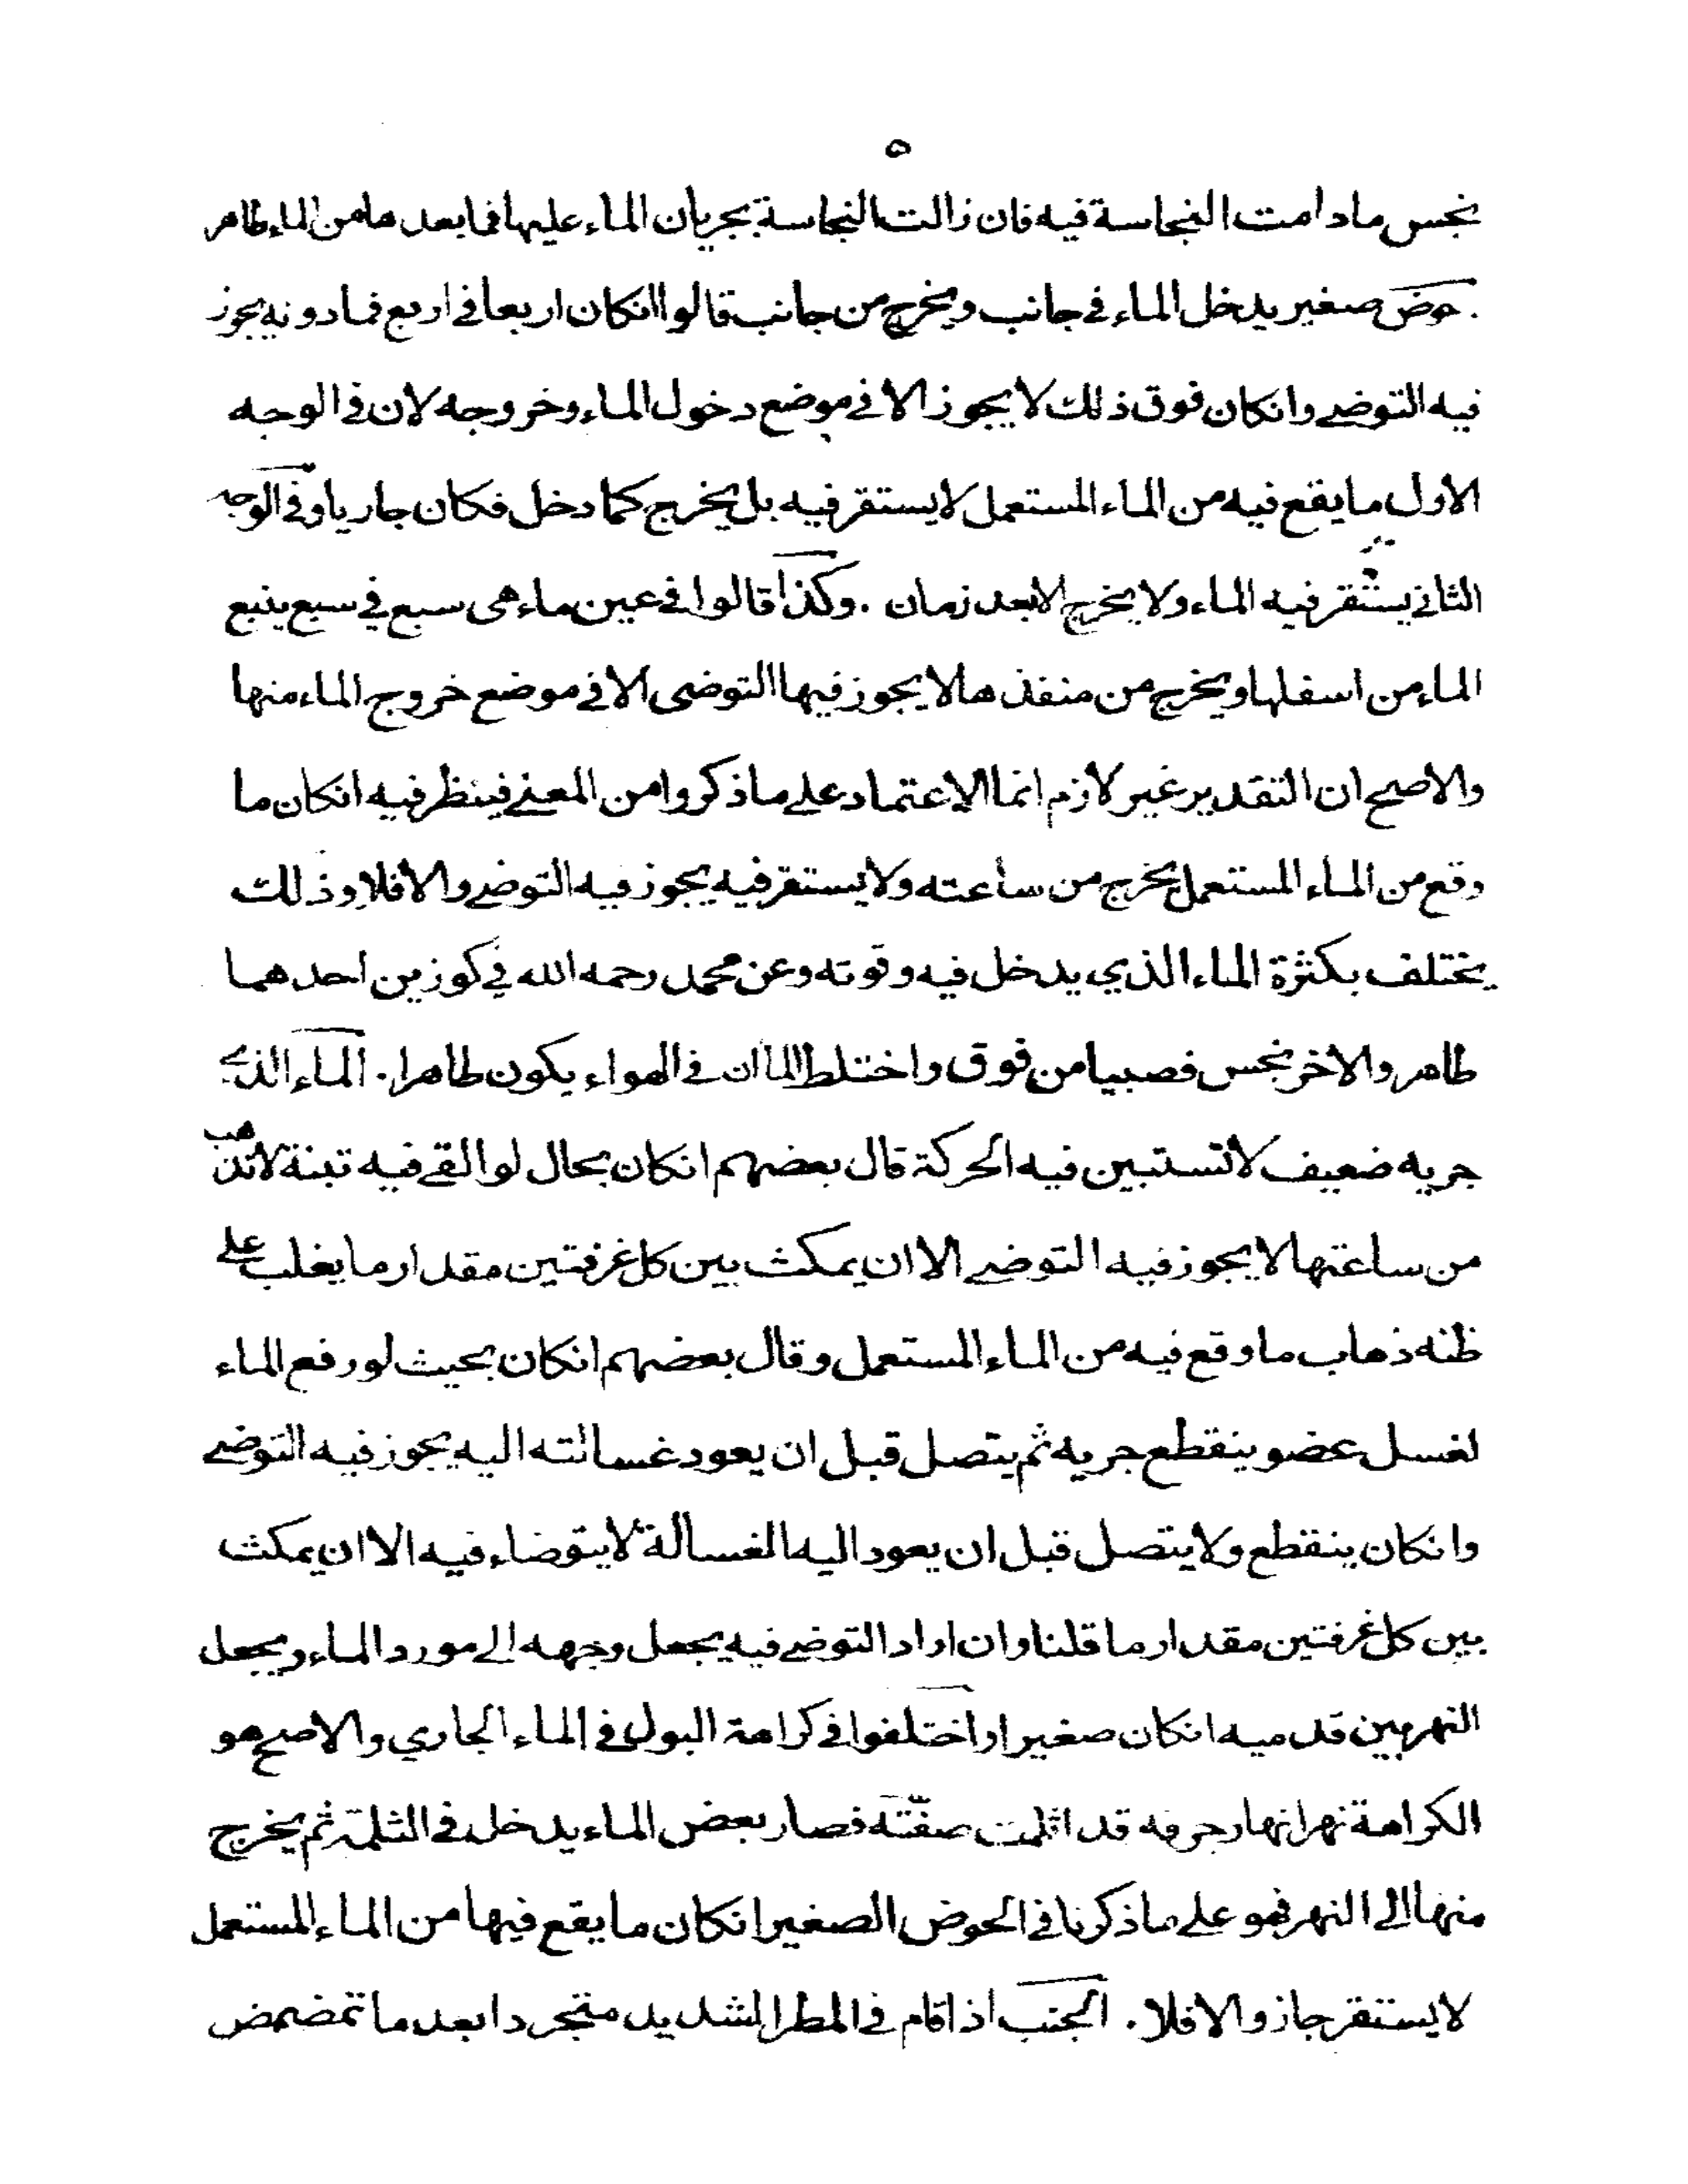 ٥
نجس مادامت النجاسة فيه فان زالت النجاسة بجريان الماء عليها فما بعدها من الماء طاهر
. حوض صغير يدخل الماء في جانب ويخرج من جانب قالوا انكان اربعا في اربع فمادونه يجوز
فيه التوضي وانكان فوق ذلك لا يجوز الا في موضع دخول الماء وخروجه لان في الوجه
الاول ما يقع فيه من الماء المستعمل لا يستقر فيه بل يخرج كما دخل فكان جاريا وفي الوجه
الثاني يستقر فيه الماء ولا يخرج الابعد زمان . وكذا قالوا في عين ماء هى سبع في سبع ينبع
الماء من اسفلها ويخرج من منفذها لا يجوز فيها التوضى الا في موضع خروج الماء منها
والاصح ان التقدير غير لازم انما الاعتماد على ما ذكروا من المعنى فينظر فيه انكان ما
وقع من الماء المستعمل يخرج من ساعته ولا يستقر فيه يجوز فيه التوضي والا فلا وذلك
يختلف بكثرة الماء الذي يدخل فيه وقوته وعن محمد رحمه الله في كوزين احدهما
طاهر والاخر نجس فصبا من فوق واختلط الماان في الهواء يكون طاهرا . الماء الذي
جريه ضعيف لا تستبين فيه الحركة قال بعضهم انكان بحال لو القي فيه تبنة لا تذهب
من ساعتها لا يجوز فيه التوضي الا ان يمكث بين كل غرفتين مقدار ما يغلب على
ظنه ذهاب ما وقع فيه من الماء المستعمل وقال بعضهم انكان بحيث لو رفع الماء
لغسل عضو ينقطع جريه ثم يتصل قبل ان يعود غسالته اليه يجوز فيه التوضي
وانكان ينقطع ولا يتصل قبل ان يعود اليه الغسالة لا يتوضاء فيه الا ان يمكث
بين كل غرفتين مقدار ما قلنا وان اراد التوضي فيه يجعل وجهه الى مورد الماء ويجعل
النهر بين قدميه انكان صغيرا واختلفوا في كراهة البول في الماء الجاري والاصح هو
الكراهة نهر انهار جرفه قد انثلمت ضفته فصار بعض الماء يدخل في الثلمة ثم يخرج
منها الى النهر فهو على ما ذكرنا في الحوض الصغير انكان ما يقع فيها من الماء المستعمل
لا يستقر جاز والا فلا . الجنب اذا قام في المطر الشديد متجردا بعد ما تمضمض